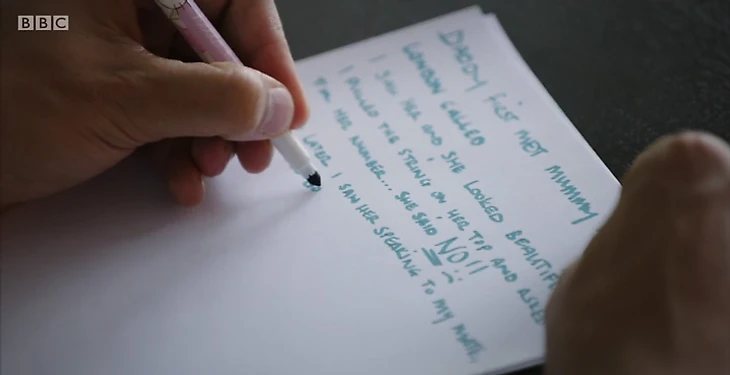 BBC
DADDY FIRST MET MUMMY
LONDON CALLED
I SAW HER AND SHE LOOKED
I PULLED THE STRING ON HER TOP AND ASKED
HER NUMBER... SHE SAID NO!!
LATER I SAW HER SPEAKING TO MY MATE